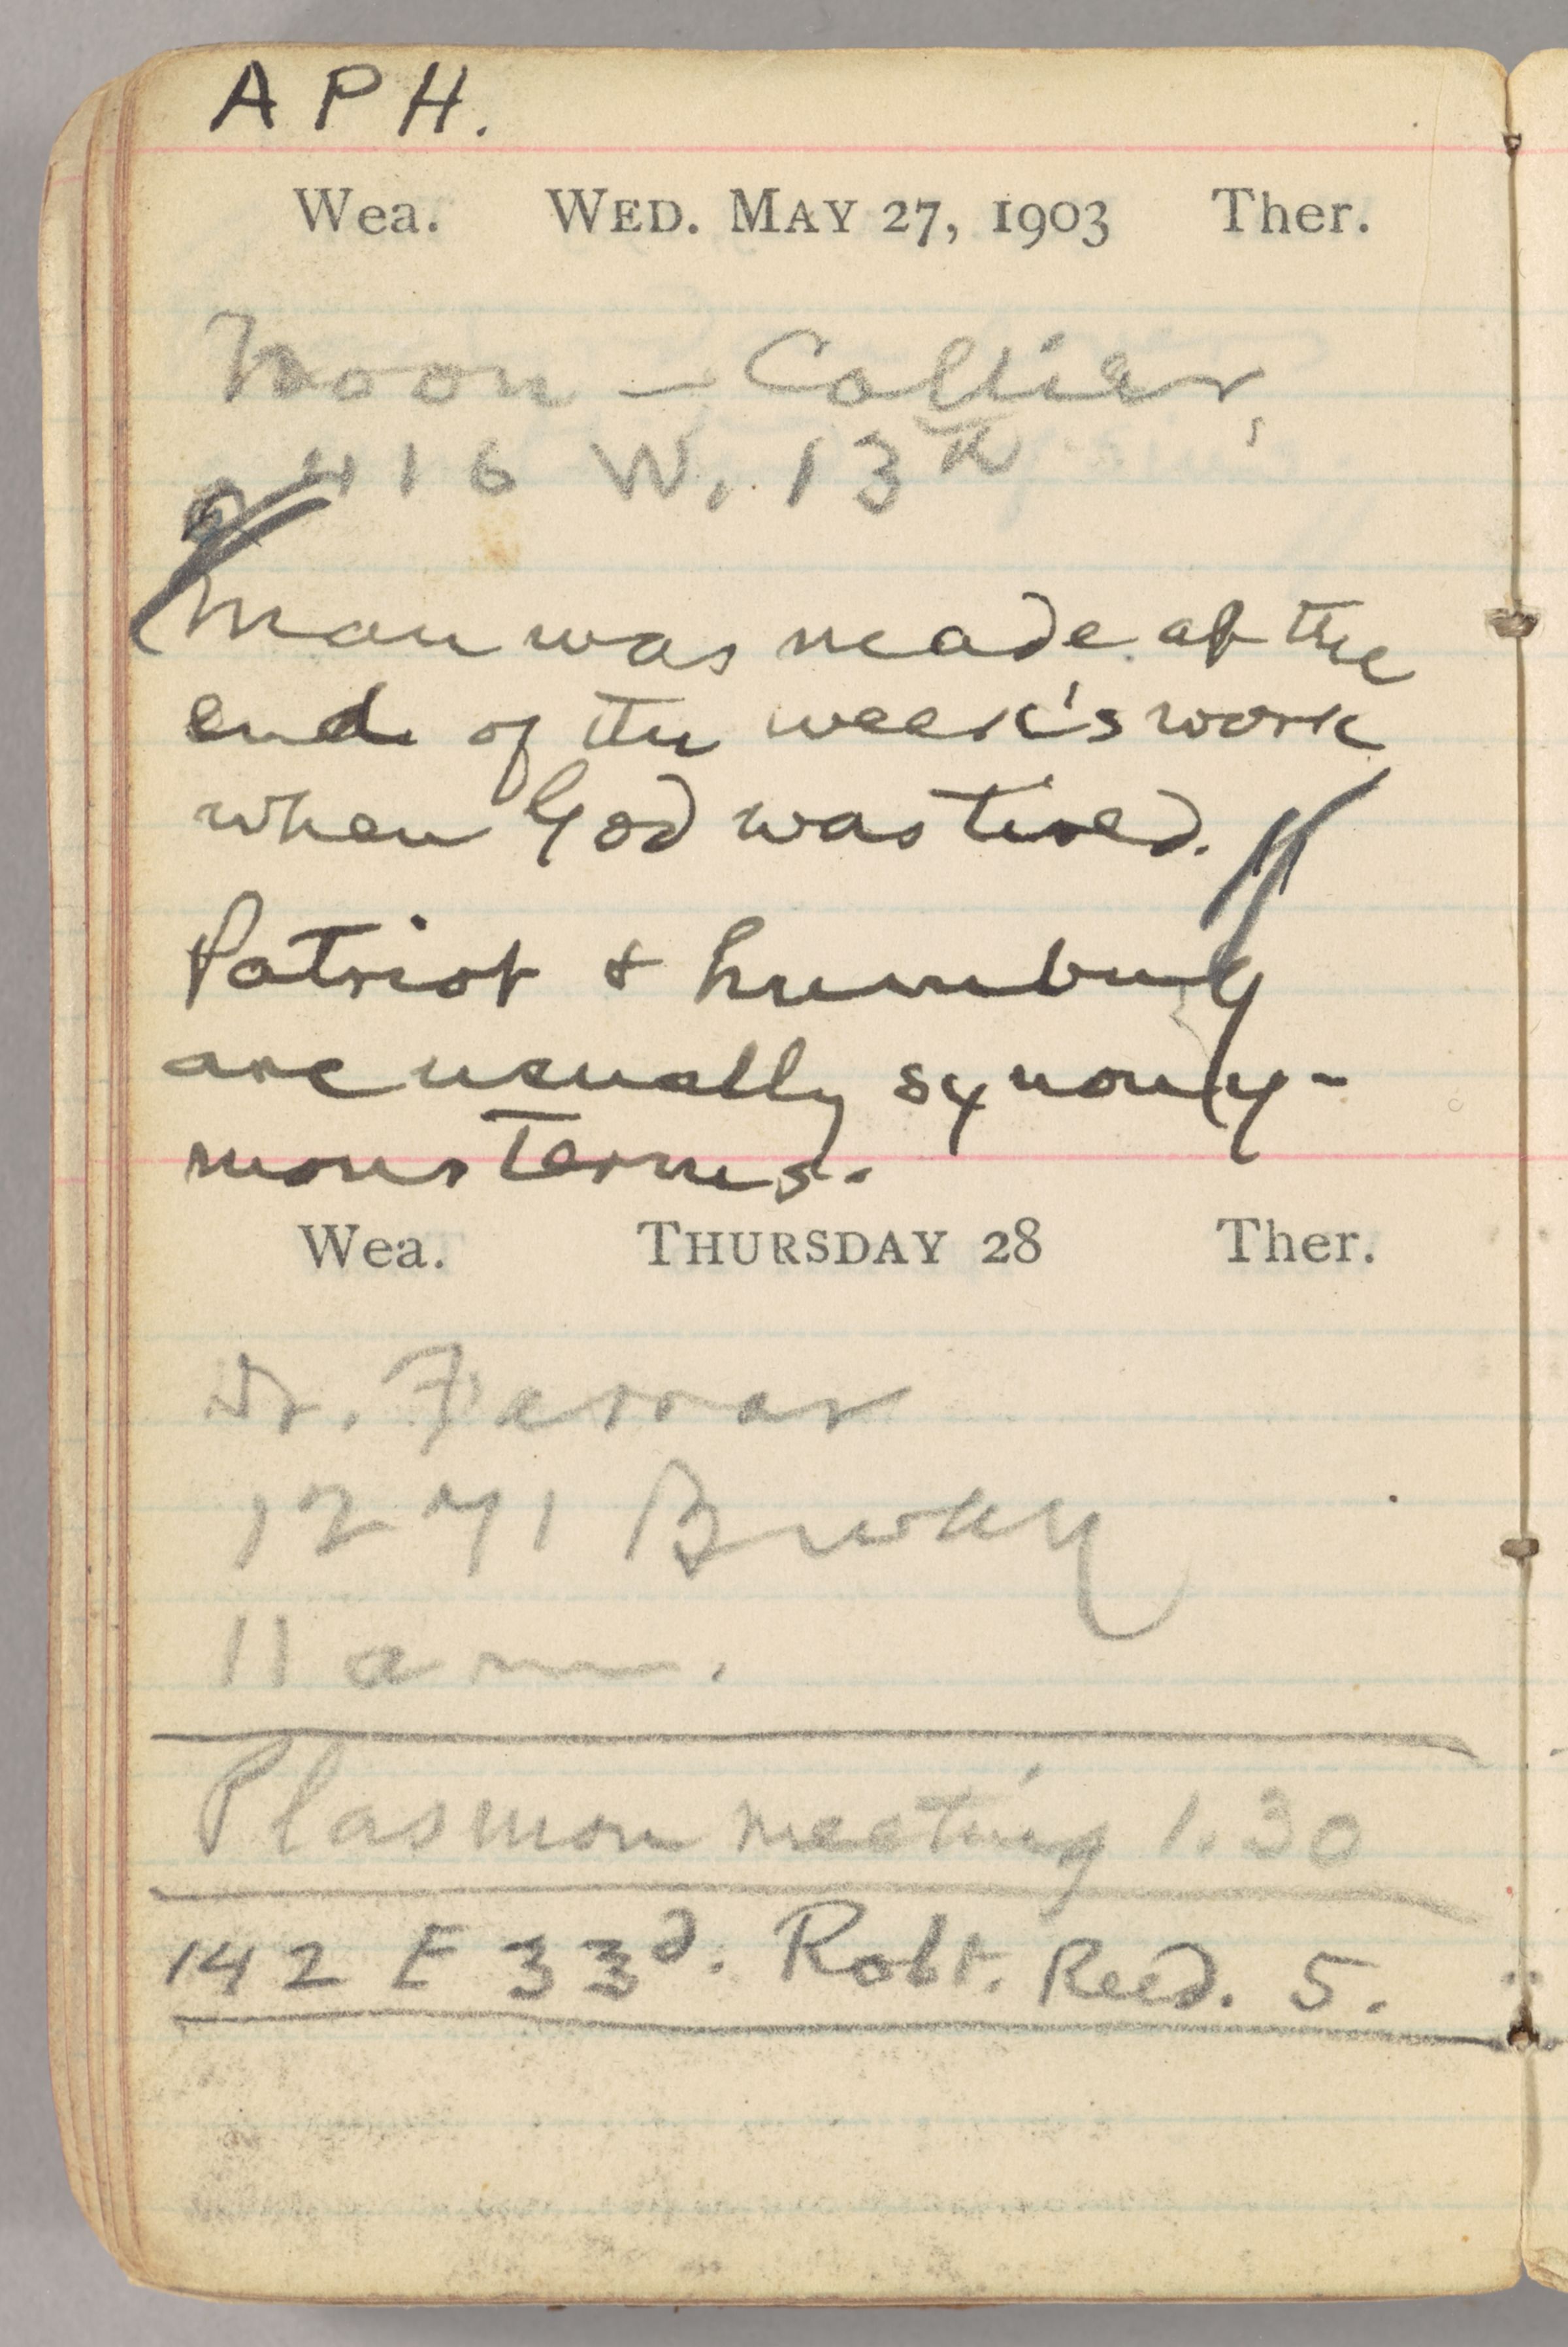 APH.
Wea. WED. MAY 27, 1903 Ther.
Noon — Collier,
416 W. 13th
Man was made at the
end of the week's work
when God was tired.
Patriot & humbug
are usually synony-
mous terms.
Wea. THURSDAY 28 Ther.
Dr. Farrar
1271 Bway
11 a m.
Plasmon meeting 1.30
142 E 33d. Robt. Reed. 5.